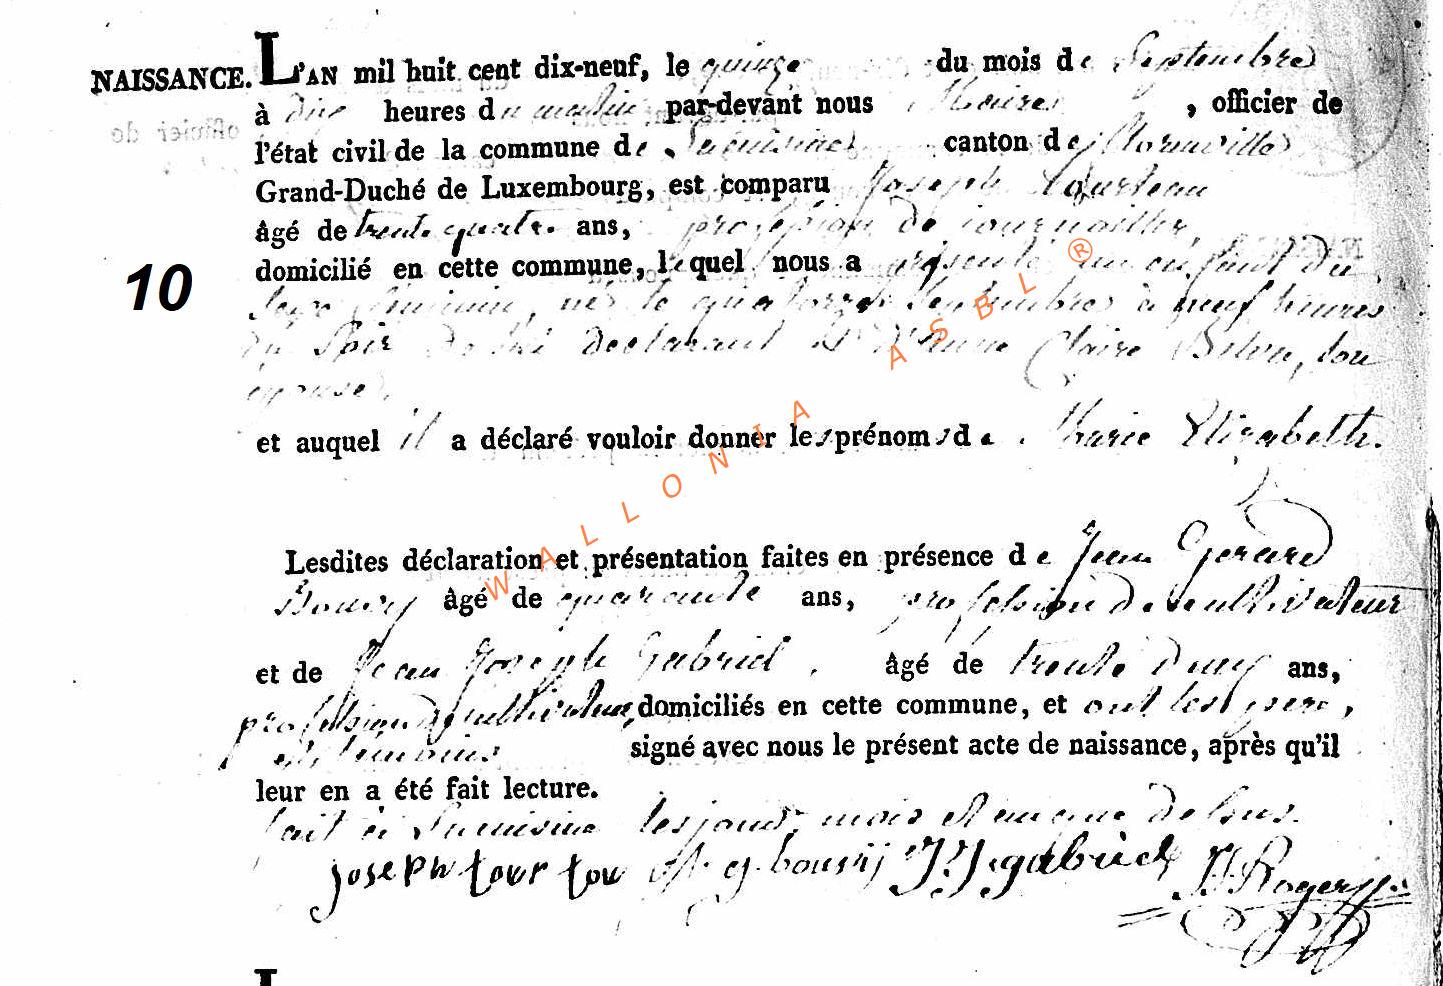 NAISSANCE. L'AN mil huit cent dix-neuf, le quinze du mois de Septembre
à dix heures du matin par-devant nous Maire , officier de
l'état civil de la commune de canton de
Grand-Duché de Luxembourg, est comparu Joseph Tourteau
âgé de trente quatre ans, profession de journallier,
10
domicilié en cette commune, lequel nous a présenté un enfant du
sexe féminin, né le quatorze Septembre à neuf heures
du Soir de lui déclarant et d'Anne Claire son
épouse,
et auquel il a déclaré vouloir donner les prénoms de Marie Elizabeth.
Lesdites déclaration et présentation faites en présence de Jean Gerard
Bouvy âgé de quarante ans, profession de cultivateur
et de Jean Joseph Gabriel, âgé de trente deux ans,
profession de cultivateur, domiciliés en cette commune, et ont les père,
et témoins signé avec nous le présent acte de naissance, après qu'il
leur en a été fait lecture.
fait à les jour, mois et an que dessus.
Joseph tourtou g bouvij J J gabriel Rogers
WALLONIA ASBL ®